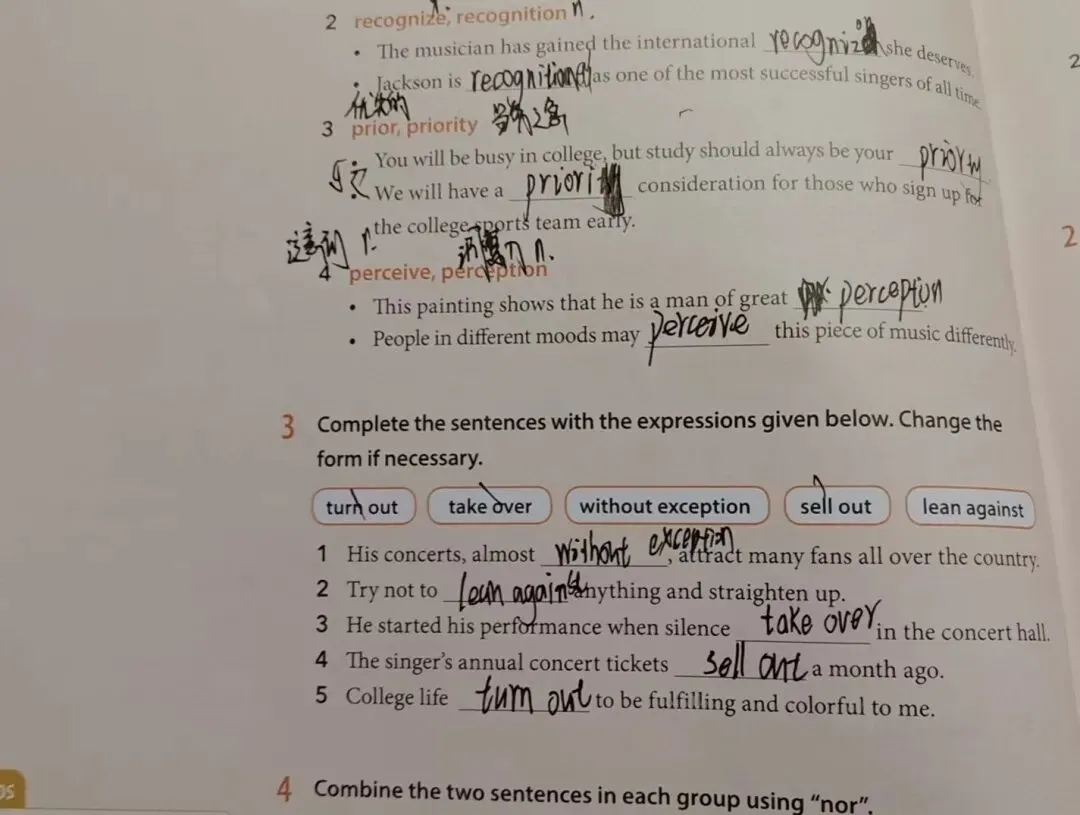 2 recognize, recognition n.
• The musician has gained the international recognition she deserves.
• Jackson is recognition as one of the most successful singers of all time.
3 prior, priority
• You will be busy in college, but study should always be your priorty
• We will have a priority consideration for those who sign up for
the college sports team early.
达到 n.
n.
4 perceive, perception
• This painting shows that he is a man of great perception
• People in different moods may perceive this piece of music differently.
3 Complete the sentences with the expressions given below. Change the
form if necessary.
turn out take over without exception sell out lean against
1 His concerts, almost without exception, attract many fans all over the country.
2 Try not to lean against anything and straighten up.
3 He started his performance when silence take over in the concert hall.
4 The singer's annual concert tickets sell out a month ago.
5 College life turn out to be fulfilling and colorful to me.
4 Combine the two sentences in each group using "nor".
2
2